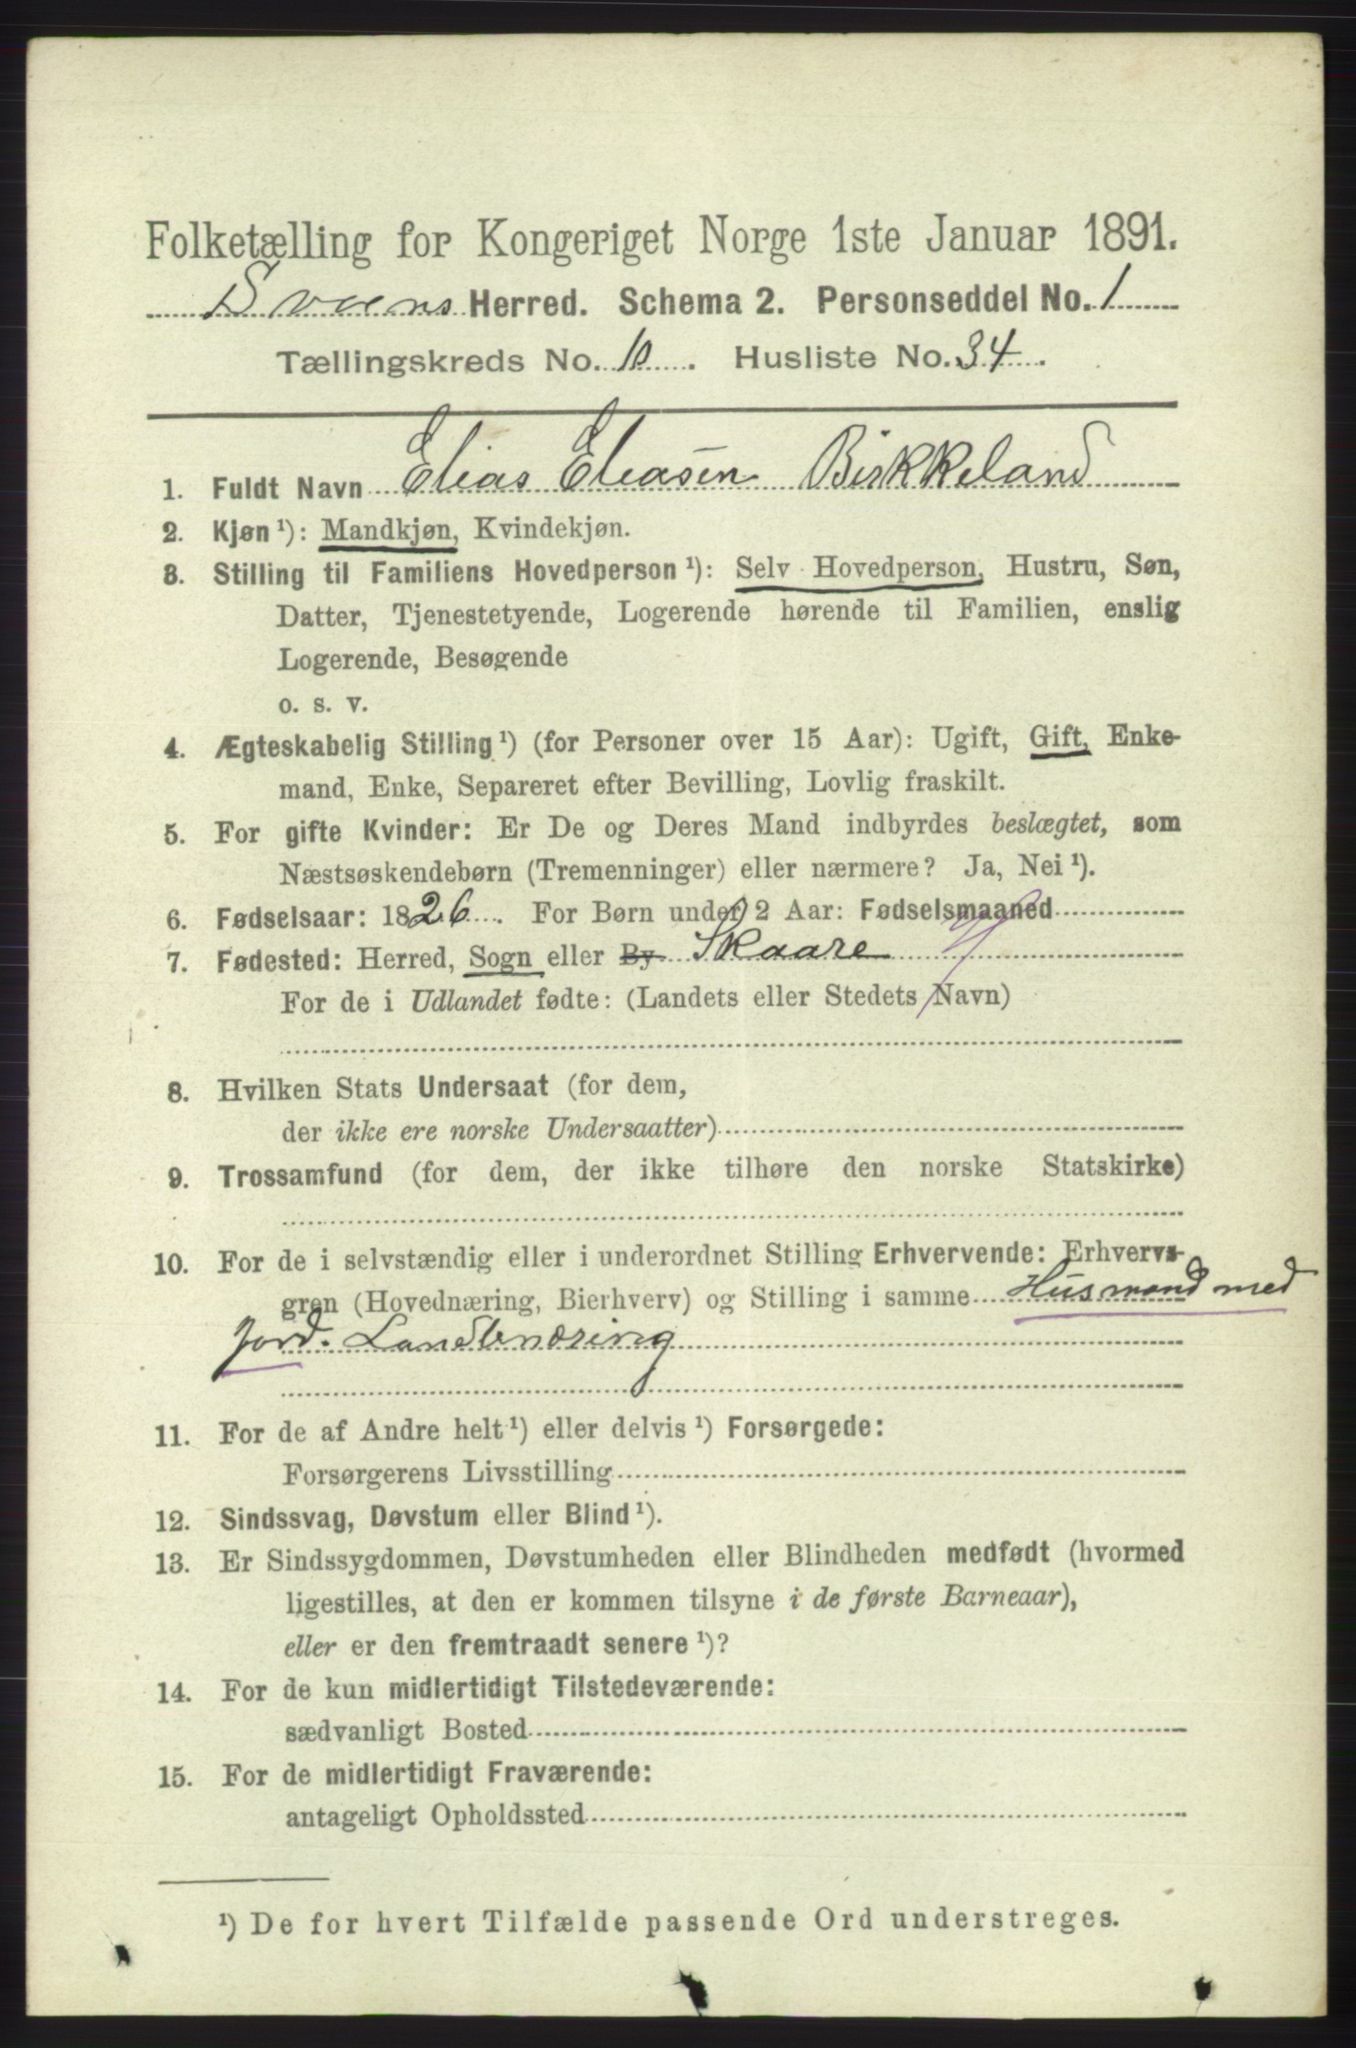 Folketælling for Kongeriget Norge 1ste Januar 1891.
Sveens Herred. Schema 2. Personseddel No. 1
Tællingskreds No. 10. Husliste No. 34.
1. Fuldt Navn Elias Eleasen Birkkeland
2. Kjøn ¹): Mandkjøn, Kvindekjøn.
3. Stilling til Familiens Hovedperson ¹): Selv Hovedperson, Hustru, Søn,
Datter, Tjenestetyende, Logerende hørende til Familien, enslig
Logerende, Besøgende
o. s. v.
4. Ægteskabelig Stilling ¹) (for Personer over 15 Aar): Ugift, Gift, Enke-
mand, Enke, Separeret efter Bevilling, Lovlig fraskilt.
5. For gifte Kvinder: Er De og Deres Mand indbyrdes beslægtet, som
Næstsøskendebørn (Tremenninger) eller nærmere? Ja, Nei ¹).
6. Fødselsaar: 1826. For Børn under 2 Aar: Fødselsmaaned
7. Fødested: Herred, Sogn eller By Skaare
For de i Udlandet fødte: (Landets eller Stedets Navn)
8. Hvilken Stats Undersaat (for dem,
der ikke ere norske Undersaatter)
9. Trossamfund (for dem, der ikke tilhøre den norske Statskirke)
10. For de i selvstændig eller i underordnet Stilling Erhvervende: Erhvervs-
gren (Hovednæring, Bierhverv) og Stilling i samme Husmand med
Jord. Landbnæring
11. For de af Andre helt ¹) eller delvis ¹) Forsørgede:
Forsørgerens Livsstilling
12. Sindssvag, Døvstum eller Blind ¹).
13. Er Sindssygdommen, Døvstumheden eller Blindheden medfødt (hvormed
ligestilles, at den er kommen tilsyne i de første Barneaar),
eller er den fremtraadt senere ¹)?
14. For de kun midlertidigt Tilstedeværende:
sædvanligt Bosted
15. For de midlertidigt Fraværende:
antageligt Opholdssted
¹) De for hvert Tilfælde passende Ord understreges.